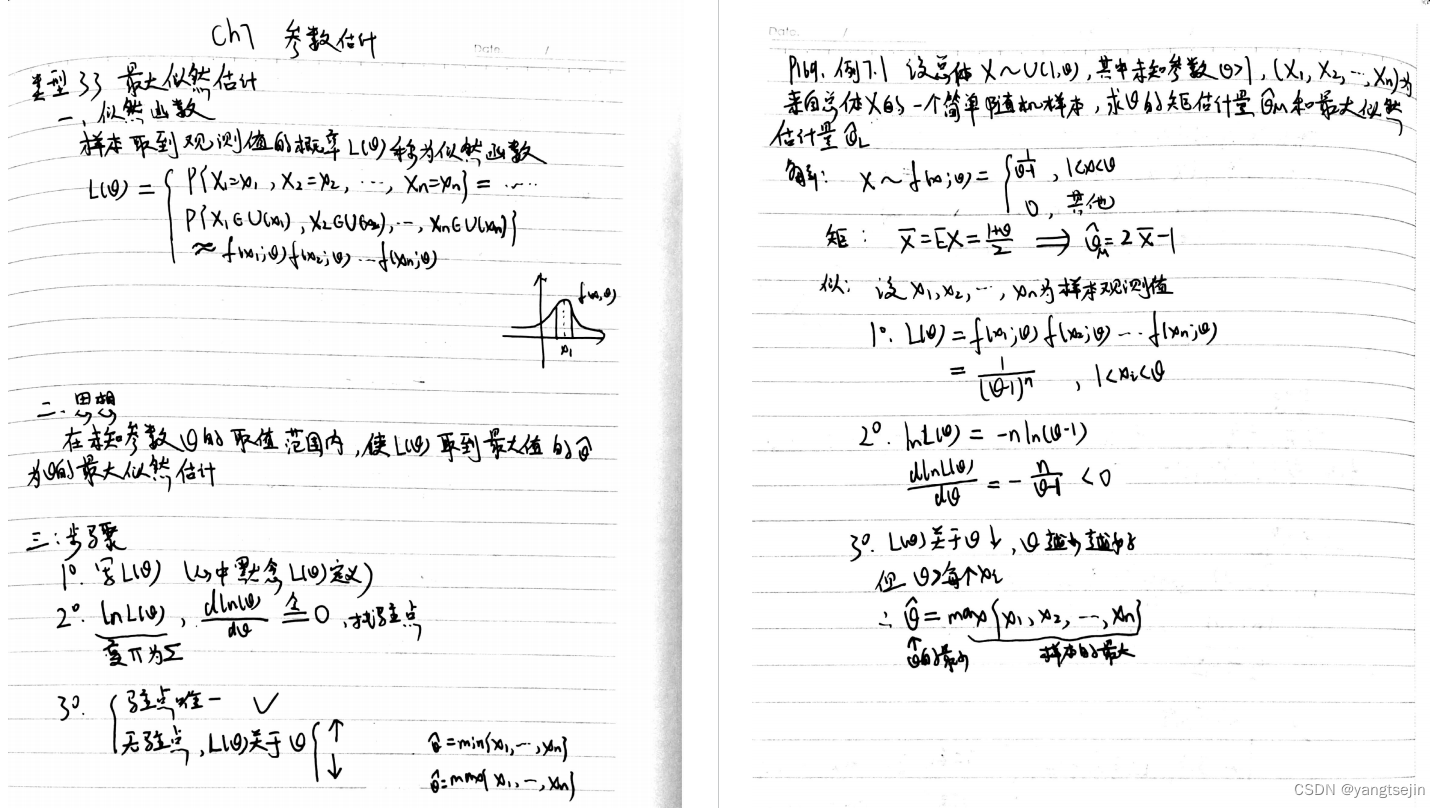 Ch7 参数估计
Date /
类型33 最大似然估计
一、似然函数
样本取到观测值的概率L(θ)称为似然函数
L(θ) = { P{X1=x1, X2=x2, …, Xn=xn} = ……
P{X1∈U(x1), X2∈U(x2), …, Xn∈U(xn)}
≈ f(x1;θ)f(x2;θ)…f(xn;θ)
f(x,θ)
x1
二、思想
在未知参数θ的取值范围内,使L(θ)取到最大值的θ̂
为θ的最大似然估计
三:步骤
1°. 写L(θ) (心中默念L(θ)定义)
2°. lnL(θ), dln(θ)/dθ ≜ 0,找驻点
变π为Σ
3°. { 驻点唯一 ✓
无驻点,L(θ)关于θ { ↑ θ̂=min{x1,…,xn}
↓ θ̂=max{x1,…,xn}
Date /
P169. 例7.1 设总体X~U(1,θ),其中未知参数θ>1,(X1,X2,…,Xn)为
来自总体X的一个简单随机样本,求θ的矩估计量θ̂M和最大似然
估计量θ̂L
解: X~f(x;θ) = { 1/(θ-1), 1<x<θ
0, 其他
矩: X̄=EX=(1+θ)/2 ⟹ θ̂M=2X̄-1
似: 设x1,x2,…,xn为样本观测值
1°. L(θ) = f(x1;θ)f(x2;θ)…f(xn;θ)
= 1/(θ-1)ⁿ , 1<xi<θ
2°. lnL(θ) = -nln(θ-1)
dlnL(θ)/dθ = -n/(θ-1) < 0
3°. L(θ)关于θ↓, θ越小越好
但θ>每个xi
∴ θ̂ = max{x1,x2,…,xn}
↑ θ的最小 样本的最大
CSDN @yangtsejin